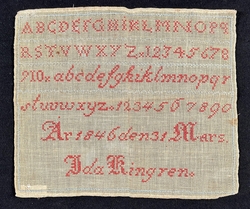 ABCDEFGHIKLMNOPQ
RSTVWXYZ. 12345678
910. abcdefghiklmnopqr
stuvwxyz. 1234567890
Ar 1846 den 31 Mars.
Ida Kingren.